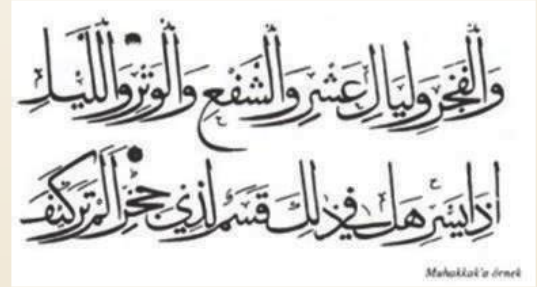 وَالْفَجْرِ وَلَيَالٍ عَشْرٍ وَالشَّفْعِ وَالْوَتْرِ وَاللَّيْلِ
إِذَا يَسْرِ هَلْ فِي ذَلِكَ قَسَمٌ لِذِي حِجْرٍ أَلَمْ تَرَ كَيْفَ
Muhakkak'a örnek